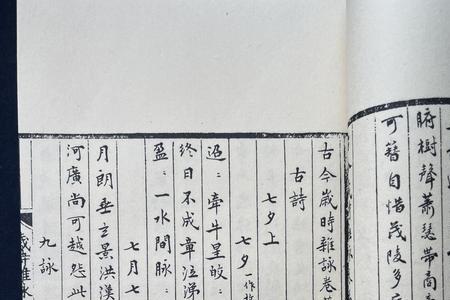 樹聲蕭瑟帶商
可籍自惜茂陵多
古今歲時雜詠卷
古詩
七夕上
七夕一作
迢:牽牛星皎:
終日不成章泣涕
盈:一水間脉:
七月七
月朗垂玄景洪漢
河廣尚可越怨此
九詠
歲時雜詠